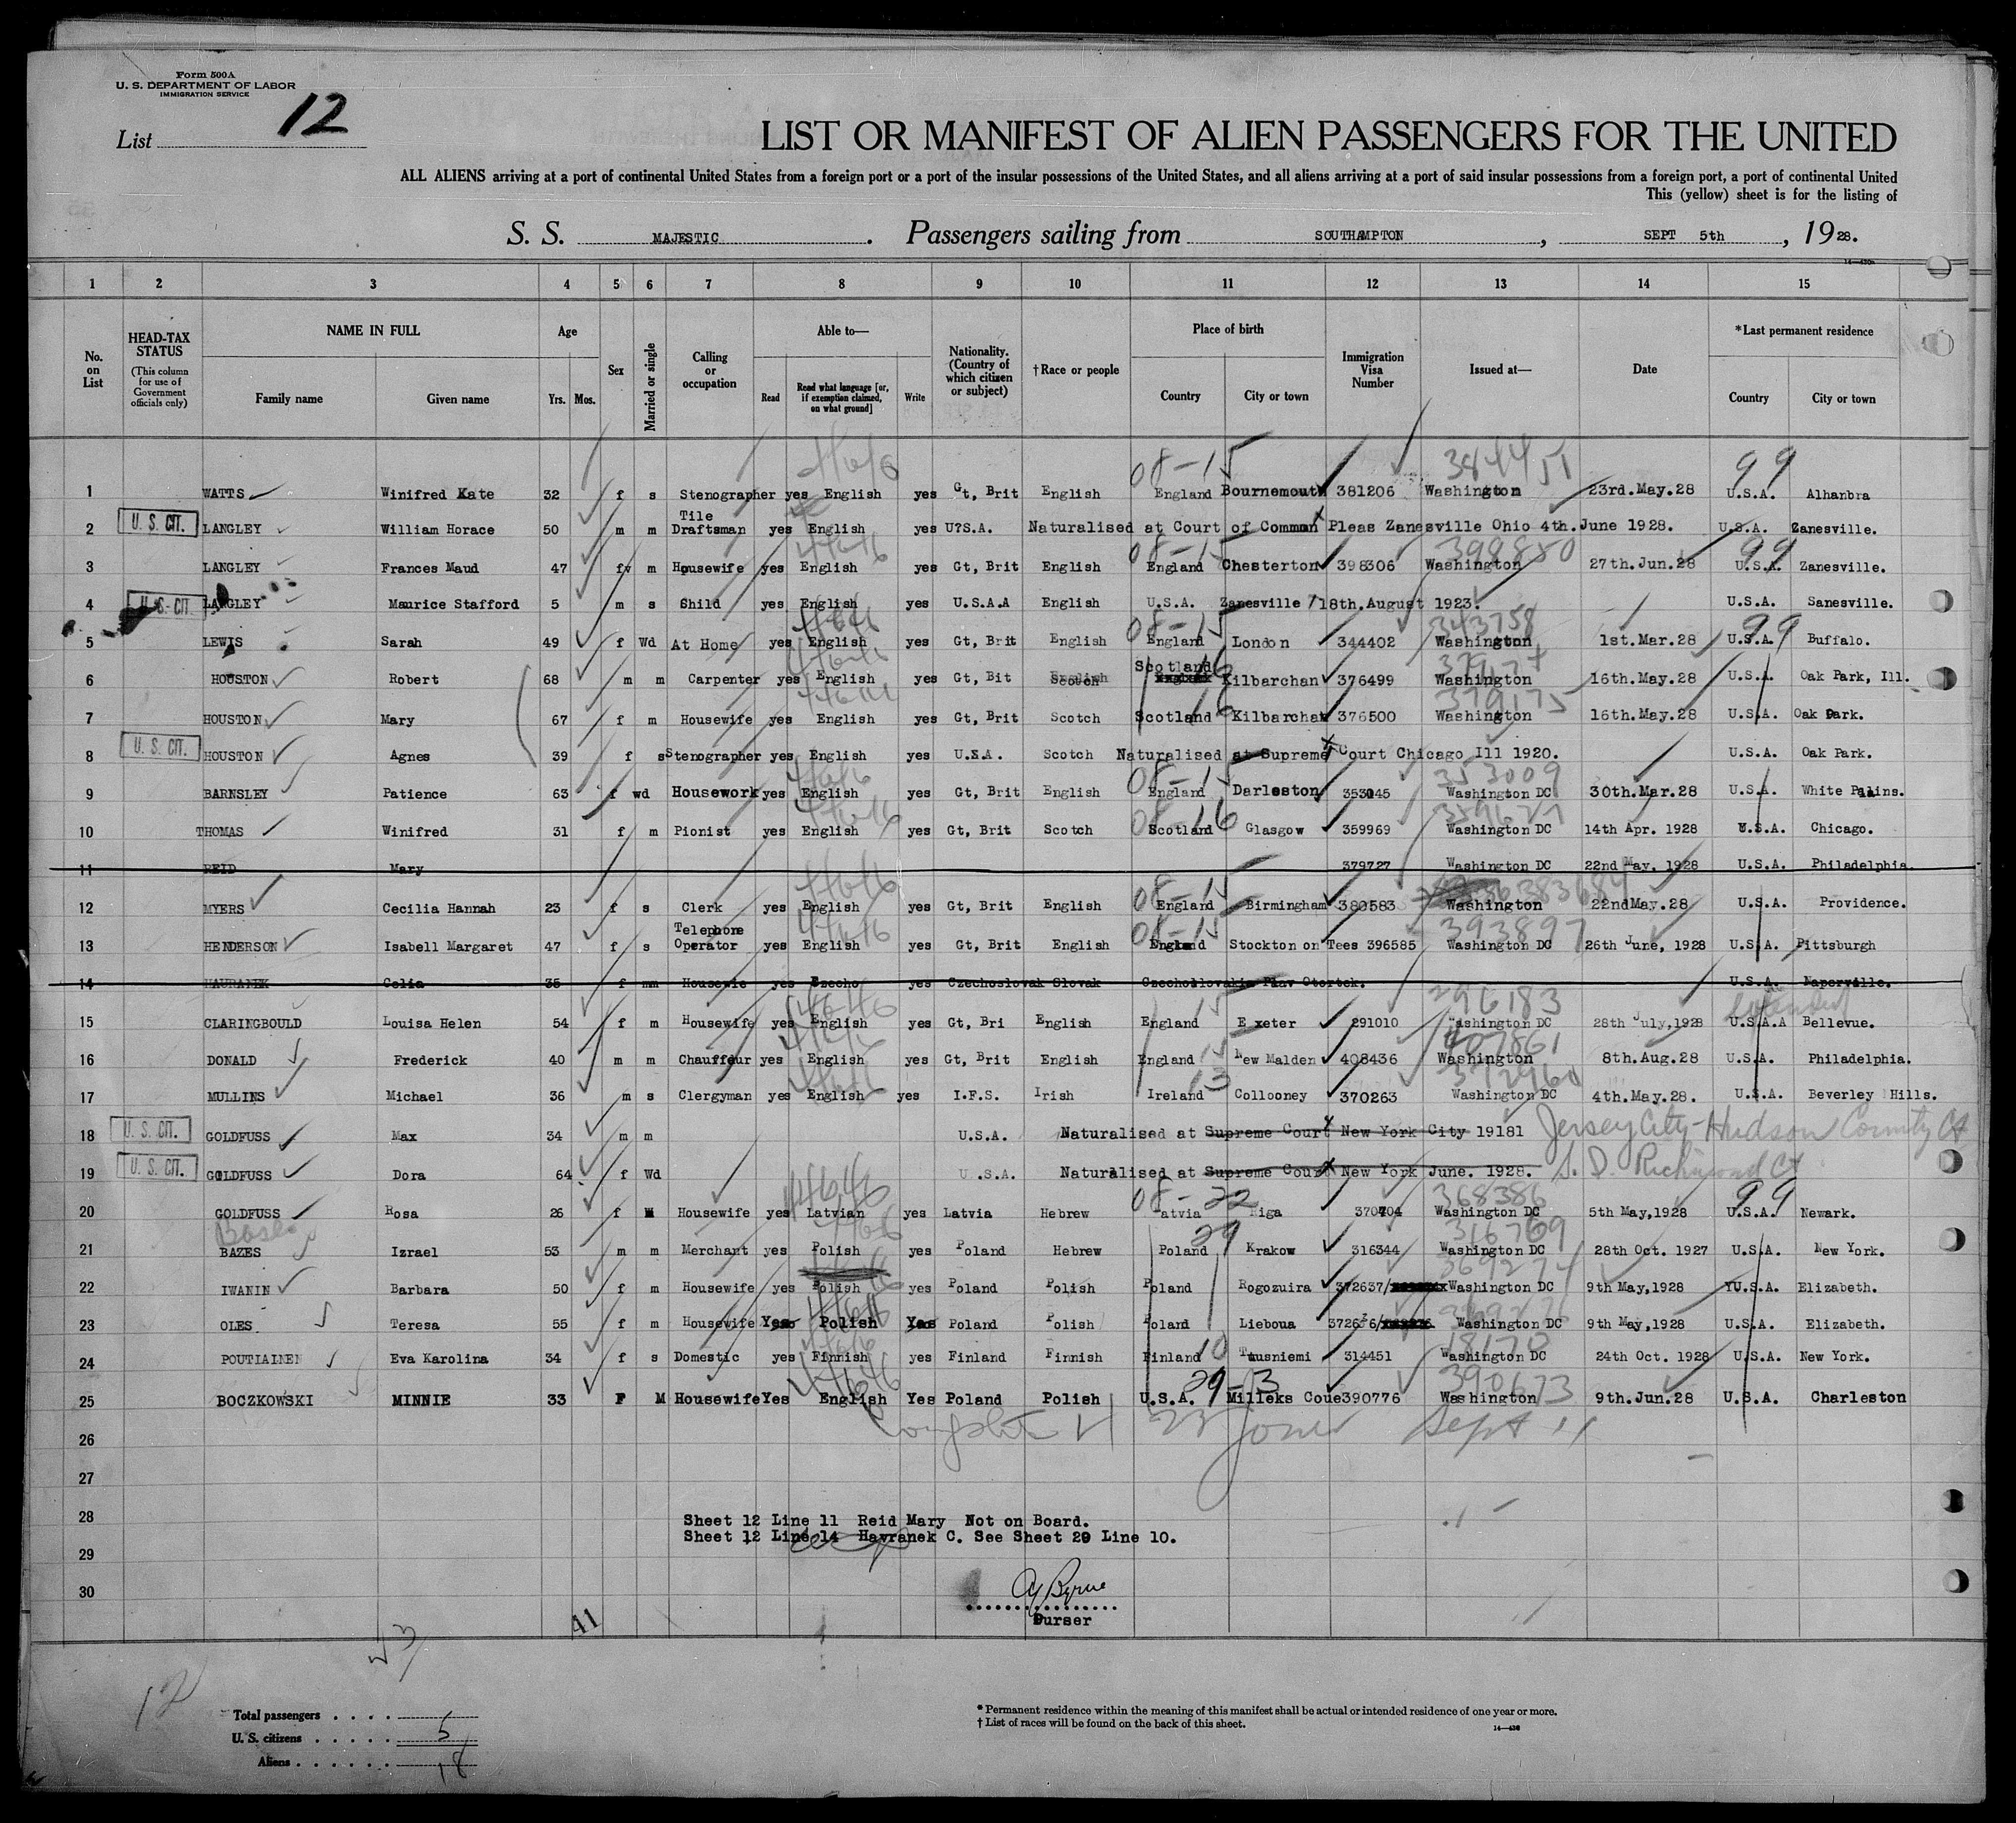 Form 500A
U. S. DEPARTMENT OF LABOR
IMMIGRATION SERVICE
List 12
LIST OR MANIFEST OF ALIEN PASSENGERS FOR THE UNITED
ALL ALIENS arriving at a port of continental United States from a foreign port or a port of the insular possessions of the United States, and all aliens arriving at a port of said insular possessions from a foreign port, a port of continental United
This (yellow) sheet is for the listing of
S. S. MAJESTIC. Passengers sailing from SOUTHAMPTON, SEPT 5th, 1928.
1 2 3 4 5 6 7 8 9 10 11 12 13 14 15
No. on List
HEAD-TAX STATUS (This column for use of Government officials only)
NAME IN FULL Family name Given name
Age Yrs. Mos.
Sex
Married or single
Calling or occupation
Able to— Read Read what language [or, if exemption claimed, on what ground] Write
Nationality. (Country of which citizen or subject)
†Race or people
Place of birth Country City or town
Immigration Visa Number
Issued at—
Date
*Last permanent residence Country City or town
4646 08-15 384451 99
1 WATTS Winifred Kate 32 f s Stenographer yes English yes Gt, Brit English England Bournemouth 381206 Washington 23rd.May.28 U.S.A. Alhanbra
2 U. S. CIT. LANGLEY William Horace 50 m m Tile Draftsman yes English yes U?S.A. Naturalised at Court of Common Pleas Zanesville Ohio 4th.June 1928. U.S.A. Zanesville.
4646 08-15 398850 99
3 LANGLEY Frances Maud 47 f m Housewife yes English yes Gt, Brit English England Chesterton 398306 Washington 27th.Jun.28 U.S.A. Zanesville.
4 U. S. CIT. LANGLEY Maurice Stafford 5 m s Child yes English yes U.S.A.A English U.S.A. Zanesville /18th.August 1923. U.S.A. Sanesville.
4646 08-15 343758 99
5 LEWIS Sarah 49 f Wd At Home yes English yes Gt, Brit English England London 344402 Washington 1st.Mar.28 U.S.A. Buffalo.
6 HOUSTON Robert 68 m m Carpenter yes English yes Gt, Bit Scotch Scotland 16 Kilbarchan 376499 Washington 16th.May.28 U.S.A. Oak Park, Ill.
16 379175
7 HOUSTON Mary 67 f m Housewife yes English yes Gt, Brit Scotch Scotland Kilbarchan 376500 Washington 16th.May.28 U.S.A. Oak Park.
8 U. S. CIT. HOUSTON Agnes 39 f s Stenographer yes English yes U.S.A. Scotch Naturalised at Supreme Court Chicago Ill 1920. U.S.A. Oak Park.
4646 08-15 353009
9 BARNSLEY Patience 63 f wd Housework yes English yes Gt, Brit English England Darleston 353045 Washington DC 30th.Mar.28 U.S.A. White Plains.
4646 08-16
10 THOMAS Winifred 31 f m Pionist yes English yes Gt, Brit Scotch Scotland Glasgow 359969 Washington DC 14th Apr. 1928 U.S.A. Chicago.
11 REID Mary 379727 Washington DC 22nd May, 1928 U.S.A. Philadelphia.
4646 08-15 383684
12 MYERS Cecilia Hannah 23 f s Clerk yes English yes Gt, Brit English England Birmingham 380583 Washington 22ndMay.28 U.S.A. Providence.
4646 08-15 393897
13 HENDERSON Isabell Margaret 47 f s Telephone Operator yes English yes Gt, Brit English England Stockton on Tees 396585 Washington DC 26th June, 1928 U.S.A. Pittsburgh
14 HAURANEK Celia 35 f mm Housewie yes Czecho yes Czechoslovak Slovak Czechollovakia Plav Otortek. U.S.A. Naperville.
4646 15 296183
15 CLARINGBOULD Louisa Helen 54 f m Housewife yes English yes Gt, Bri English England Exeter 291010 Washington DC 28th July,1928 U.S.A.A Bellevue.
4646 15 407861
16 DONALD Frederick 40 m m Chauffeur yes English yes Gt, Brit English England New Malden 408436 Washington 8th.Aug.28 U.S.A. Philadelphia.
4646 13 372960
17 MULLINS Michael 36 m s Clergyman yes English yes I.F.S. Irish Ireland Collooney 370263 Washington DC 4th.May.28. U.S.A. Beverley Hills.
18 U. S. CIT. GOLDFUSS Max 34 m m U.S.A. Naturalised at Supreme Court New York City 19181 Jersey City-Hudson County Ct
19 U. S. CIT. GOLDFUSS Dora 64 f Wd U.S.A. Naturalised at Supreme Court New York June. 1928. S. D. Richmond Ct
4646 08-22 368386 99
20 GOLDFUSS Rosa 26 f M Housewife yes Latvian yes Latvia Hebrew Latvia Riga 370404 Washington DC 5th May,1928 U.S.A. Newark.
29 316769
21 BAZES Izrael 53 m m Merchant yes Polish yes Poland Hebrew Poland Krakow 316344 Washington DC 28th Oct. 1927 U.S.A. New York.
369274
22 IWANIN Barbara 50 f m Housewife yes Polish yes Poland Polish Poland Rogozuira 372637/ Washington DC 9th May,1928 YU.S.A. Elizabeth.
23 OLES Teresa 55 f m Housewife Yes Polish Yes Poland Polish Poland Lieboua 372636/ Washington DC 9th May,1928 U.S.A. Elizabeth.
4646 10 18170
24 POUTIAINEN Eva Karolina 34 f s Domestic yes Finnish yes Finland Finnish Finland Tuusniemi 314451 Washington DC 24th Oct. 1928 U.S.A. New York.
4646 29-3 390673
25 BOCZKOWSKI MINNIE 33 F M Housewife Yes English Yes Poland Polish U.S.A. Milleks Coue 390776 Washington 9th.Jun.28 U.S.A. Charleston
26 Jones Sept 11
27
28 Sheet 12 Line 11 Reid Mary Not on Board.
Sheet 12 Line 14 Havranek C. See Sheet 29 Line 10.
29
30 Byrne
Purser
41
12
Total passengers
U. S. citizens 5
Aliens 18
* Permanent residence within the meaning of this manifest shall be actual or intended residence of one year or more.
† List of races will be found on the back of this sheet.
14—430